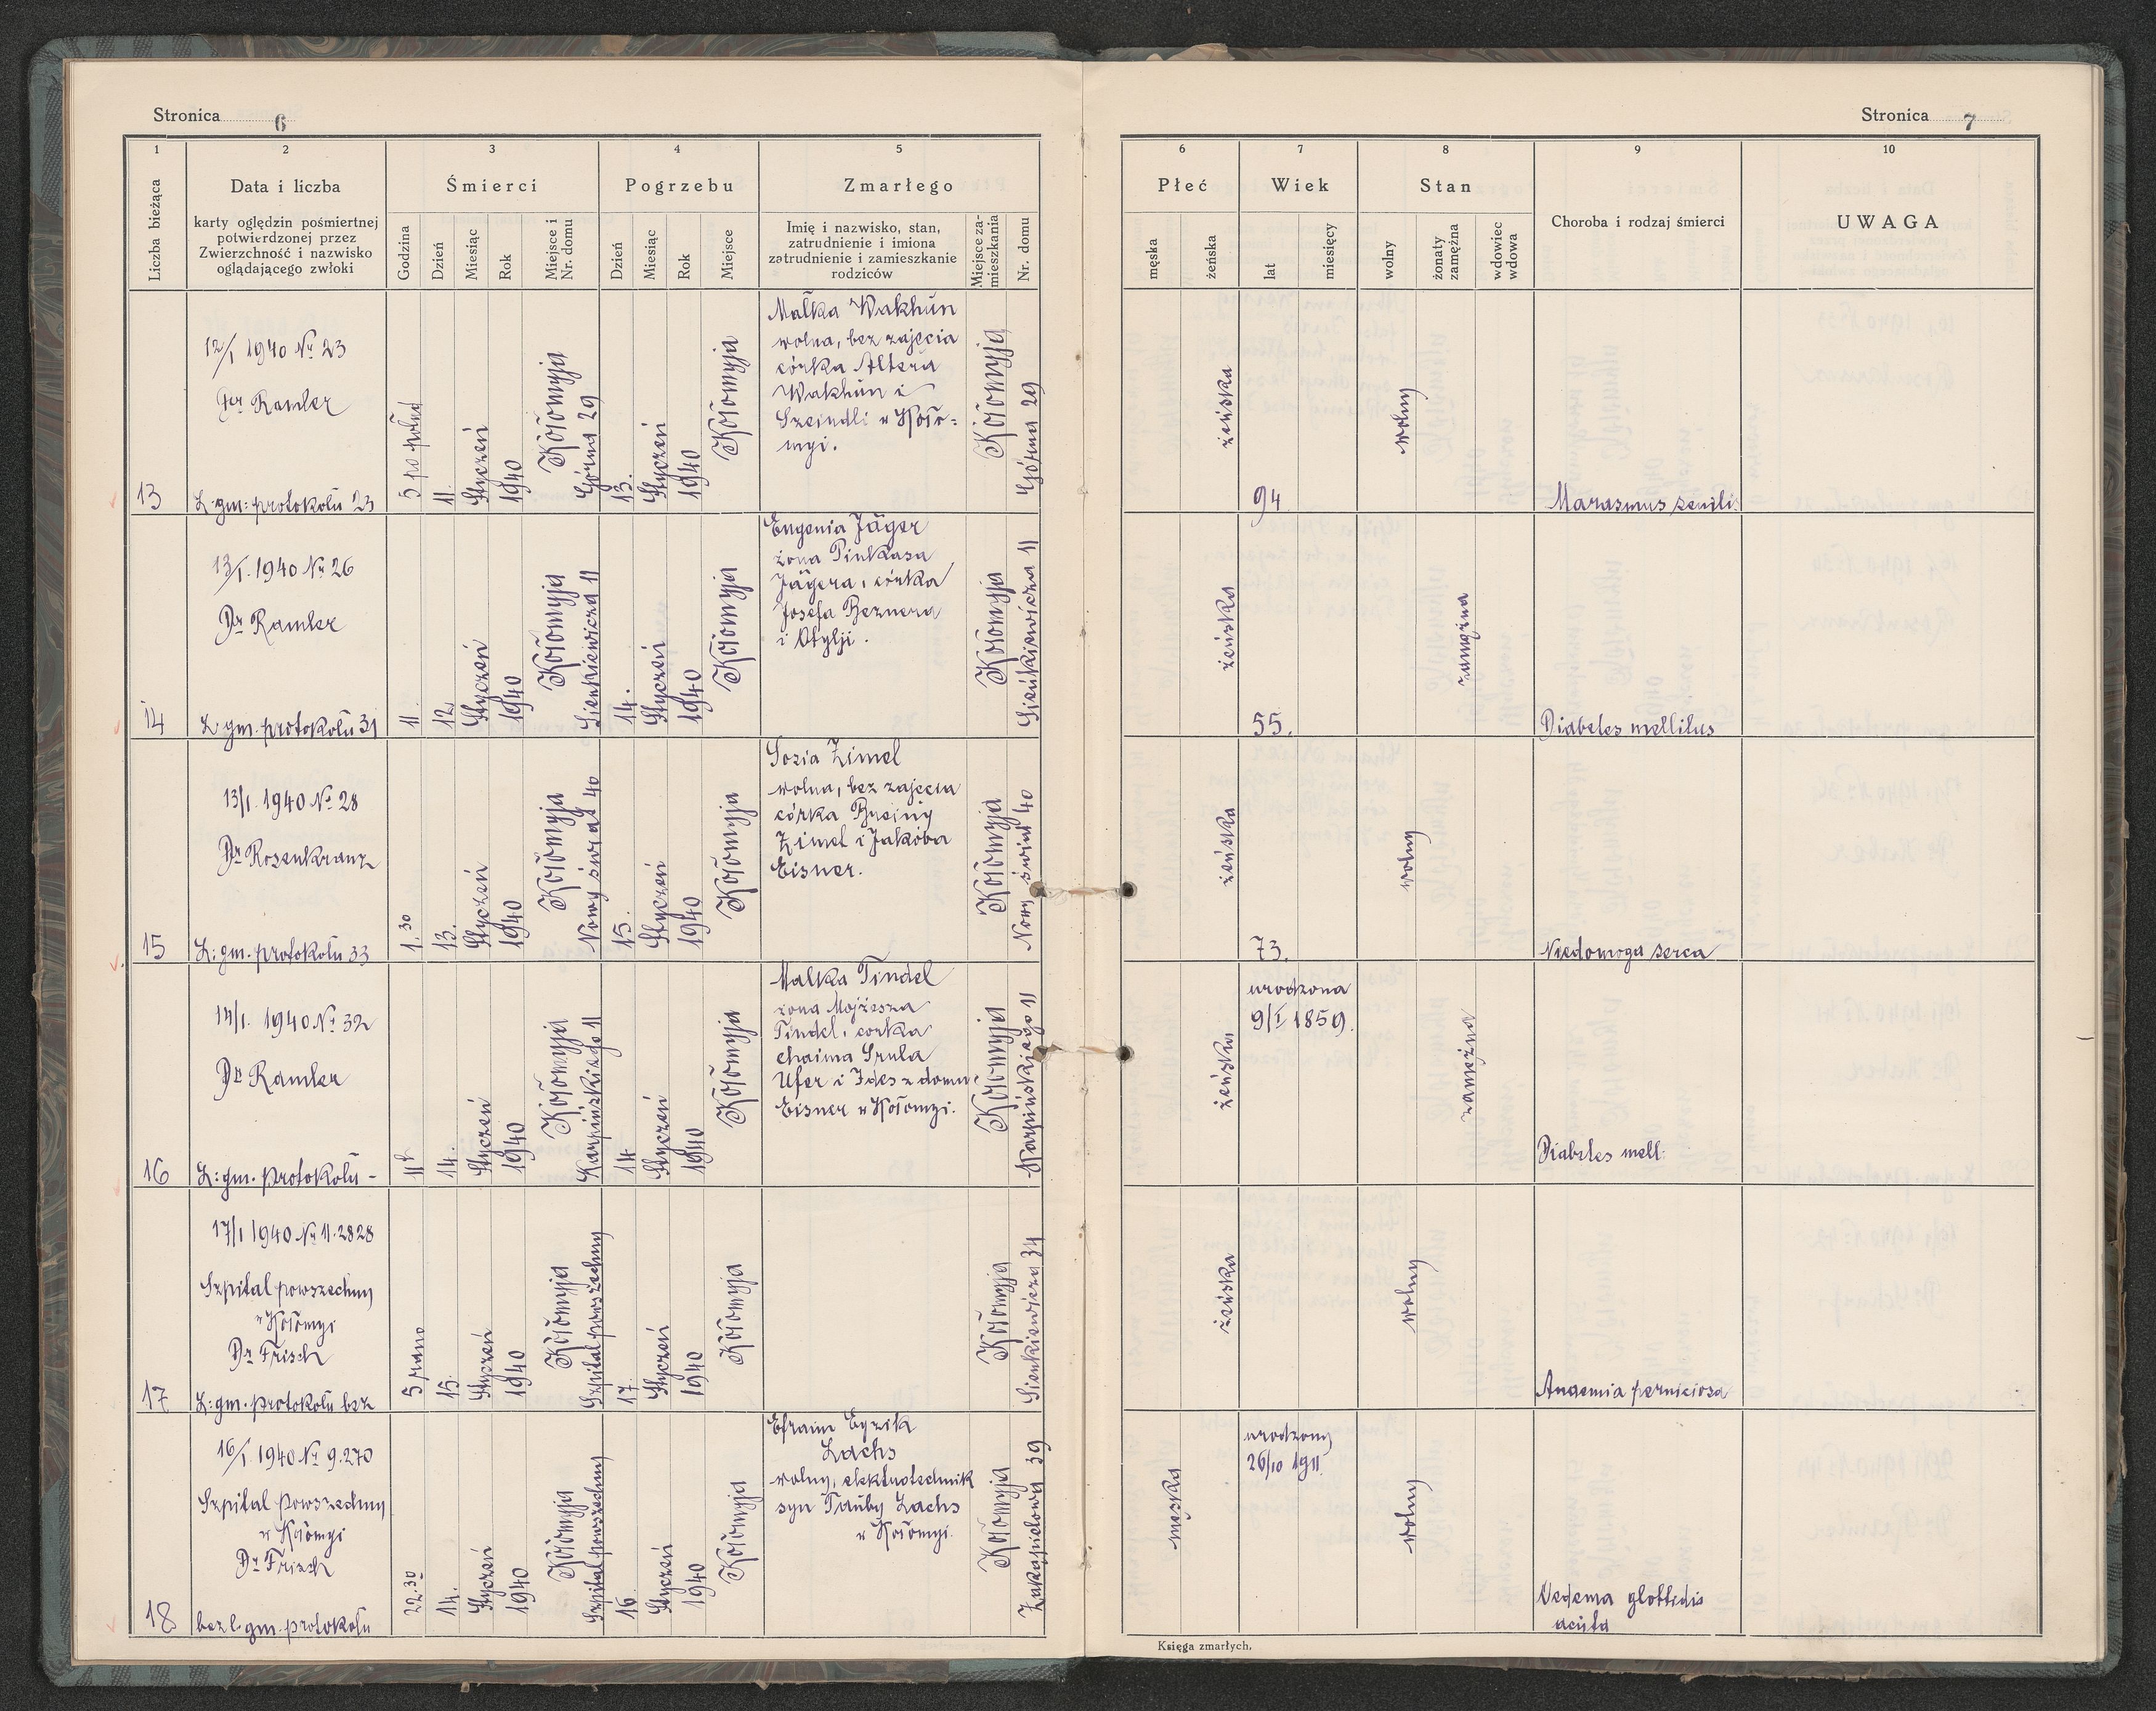 Stronica 6
1 2 3 4 5
Liczba bieżąca
Data i liczba
karty oględzin pośmiertnej
potwierdzonej przez
Zwierzchność i nazwisko
oglądającego zwłoki
Śmierci
Godzina
Dzień
Miesiąc
Rok
Miejsce i
Nr. domu
Pogrzebu
Dzień
Miesiąc
Rok
Miejsce
Zmarłego
Imię i nazwisko, stan,
zatrudnienie i imiona
zatrudnienie i zamieszkanie
rodziców
Miejsce za-
mieszkania
Nr. domu
13
12/I 1940 № 23
Dr Ramler
L: gm: protokołu 23
5 po połud
11.
Styczeń
1940
Kołomyja
Górna 29
13.
Styczeń
1940
Kołomyja
Malka Wakhün
wolna, bez zajęcia
córka Altera
Wakhün i
Szeindli w Koło-
myi.
Kołomyja
Górna 29
14
13/I. 1940 № 26
Dr Ramler
L: gm. protokołu 31
11.
12.
Styczeń
1940
Kołomyja
Sienkiewicza 11
14.
Styczeń
1940
Kołomyja
Eugenia Jäger
żona Pinkasa
Jägera, córka
Josefa Beznera
i Otylji.
Kołomyja
Sienkiewicza 11
15
13/I. 1940 № 28
Dr Rosenkranz
L: gm. protokołu 33
1.30
13.
Styczeń
1940
Kołomyja
Nowy świat 40
15.
Styczeń
1940
Kołomyja
Sosia Zimel
wolna, bez zajęcia
córka
Zimel i Jakóba
Eisner.
Kołomyja
Nowy świat 40
16
14/I. 1940 № 32
Dr Ramler
L: gm. protokołu -
11
14.
Styczeń
1940
Kołomyja
Karpińskiego 11
14.
Styczeń
1940
Kołomyja
Malka Tindel
żona Mojżesza
Tindel, corka
Chaima Srula
Ufer i Ides z domu
Eisner w Kołomyi.
Kołomyja
Karpińskiego 11
17
17/I 1940 № 11.2828
Szpital powszechny
w Kołomyi
Dr Frisch
L: gm. protokołu bez
5 rano
15.
Styczeń
1940
Kołomyja
Szpital powszechny
17.
Styczeń
1940
Kołomyja
Kołomyja
Sienkiewicza 34
18
16/I. 1940 № 9.270
Szpital powszechny
w Kołomyi
Dr Frisch
bez l. gm. protokołu
22.30
14.
Styczeń
1940
Kołomyja
Szpital powszechny
16.
Styczeń
1940
Kołomyja
Efraim Eyzik
Lachs
wolny, elektrotechnik
syn Tauby Lachs
w Kołomyi.
Kołomyja
39
Stronica 7
6 7 8 9 10
Płeć
męska
żeńska
Wiek
lat
miesięcy
Stan
wolny
żonaty
zamężna
wdowiec
wdowa
Choroba i rodzaj śmierci
UWAGA
żeńska
94
wolny
Marasmus senilis
żeńska
55.
zamężna
Diabetes mellitus
żeńska
73.
wolny
Niedomoga serca
żeńska
urodzona
9/I 1859.
zamężna
Diabetes mell.
żeńska
wolny
Anaemia perniciosa
męska
urodzony
26/10 1911.
wolny
Oedema glottidis
acuta
Księga zmarłych.